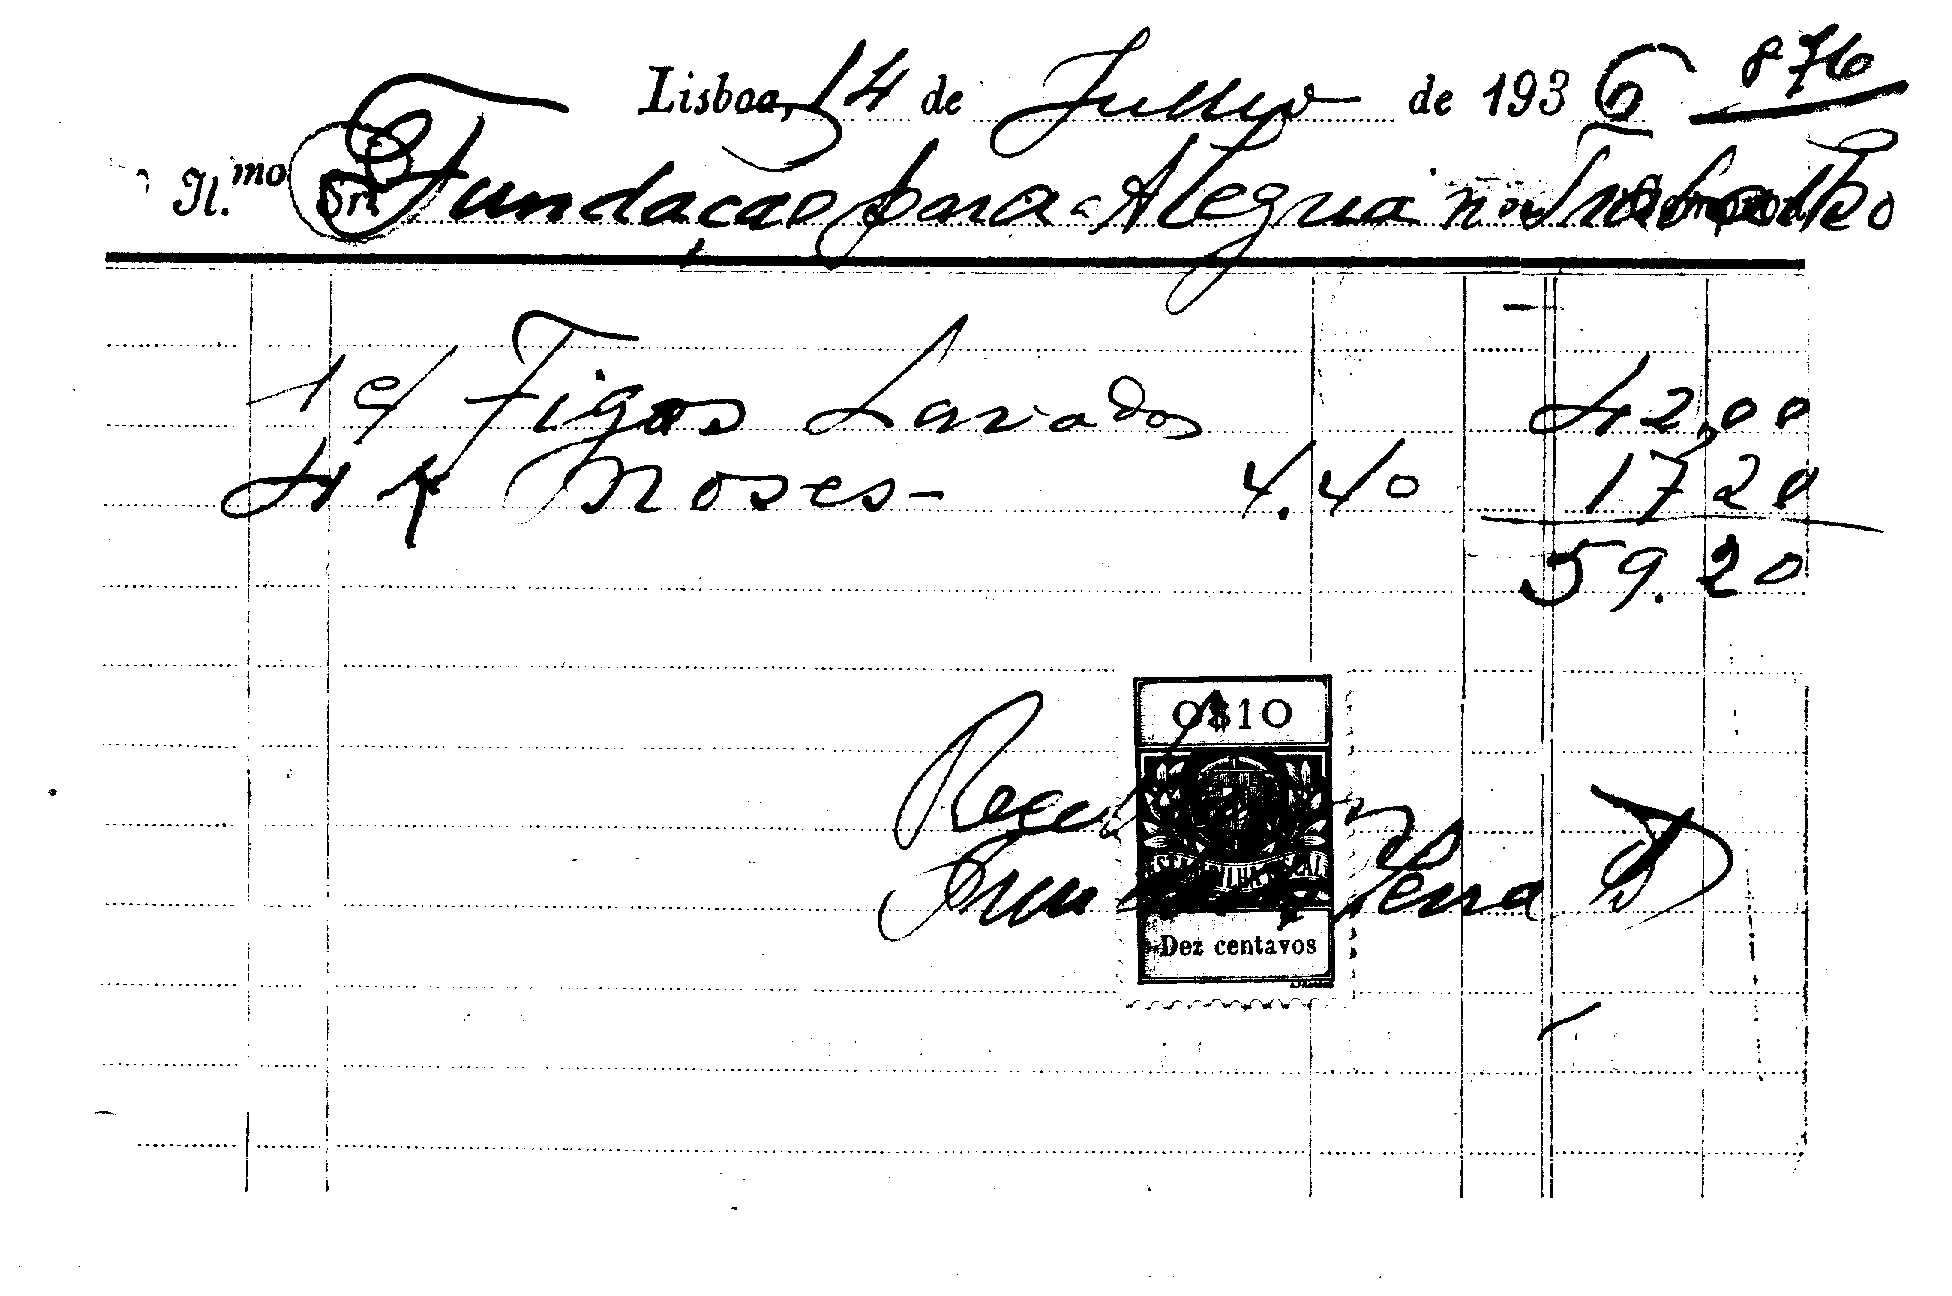 876
Lisboa, 14 de Julho de 1936
Il.mo Snr. Fundação para a Alegria no Trabalho
1 c/ Figos Lavados 42,00
4 K Noses - 4.40 17,20
59.20
0$10
Recebi
Serra
Dez centavos